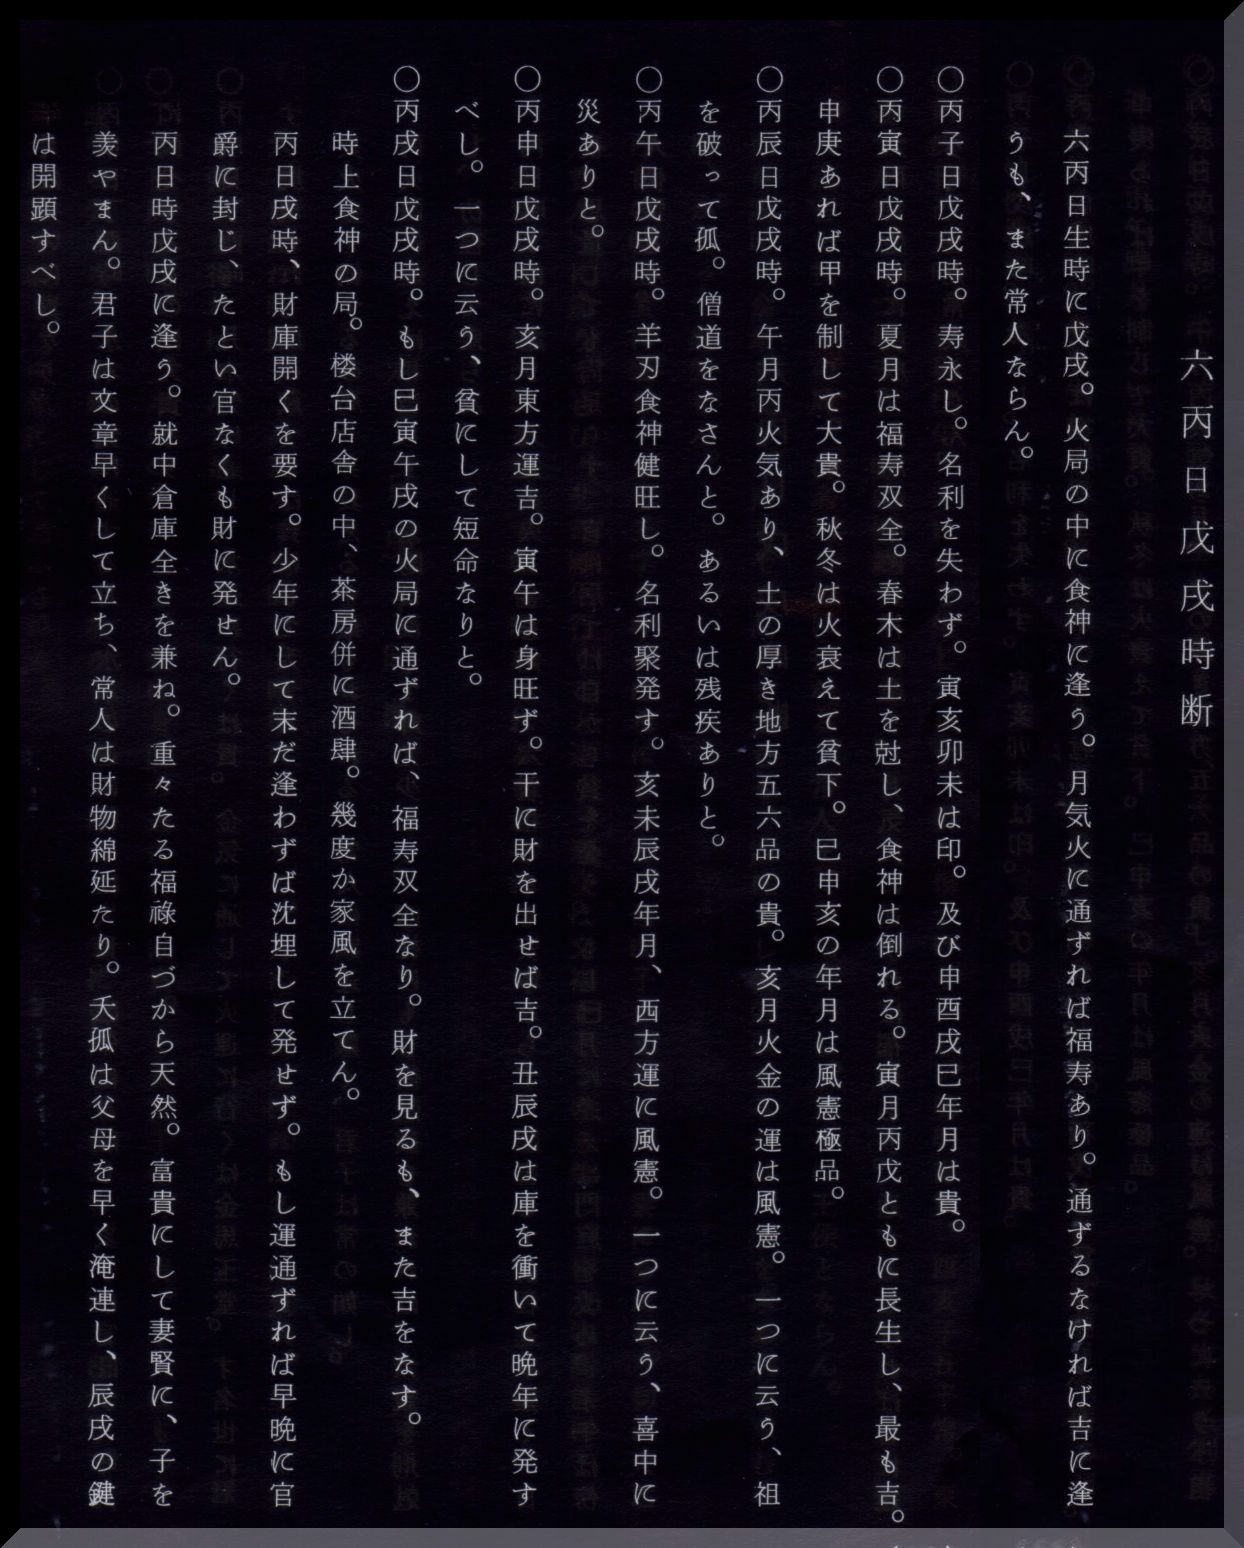 六丙日戊戌時断
六丙日生時に戊戌。火局の中に食神に逢う。月気火に通ずれば福寿あり。通ずるなければ吉に逢
うも、また常人ならん。
〇丙子日戊戌時。寿永し。名利を失わず。寅亥卯未は印。及び申酉戌巳年月は貴。
〇丙寅日戊戌時。夏月は福寿双全。春木は土を尅し、食神は倒れる。寅月丙戊ともに長生し、最も吉。
申庚あれば甲を制して大貴。秋冬は火衰えて貧下。巳申亥の年月は風憲極品。
〇丙辰日戊戌時。午月丙火気あり、土の厚き地方五六品の貴。亥月火金の運は風憲。一つに云う、祖
を破って孤。僧道をなさんと。あるいは残疾ありと。
〇丙午日戊戌時。羊刃食神健旺し。名利聚発す。亥未辰戌年月、西方運に風憲。一つに云う、喜中に
災ありと。
〇丙申日戊戌時。亥月東方運吉。寅午は身旺ず。干に財を出せば吉。丑辰戌は庫を衝いて晩年に発す
べし。一つに云う、貧にして短命なりと。
〇丙戌日戊戌時。もし巳寅午戌の火局に通ずれば、福寿双全なり。財を見るも、また吉をなす。
時上食神の局。楼台店舎の中、茶房併に酒肆。幾度か家風を立てん。
丙日戌時、財庫開くを要す。少年にして末だ逢わずば沈埋して発せず。もし運通ずれば早晩に官
爵に封じ、たとい官なくも財に発せん。
丙日時戊戌に逢う。就中倉庫全きを兼ね。重々たる福祿自づから天然。富貴にして妻賢に、子を
羨やまん。君子は文章早くして立ち、常人は財物綿延たり。夭孤は父母を早く淹連し、辰戌の鍵
は開顕すべし。